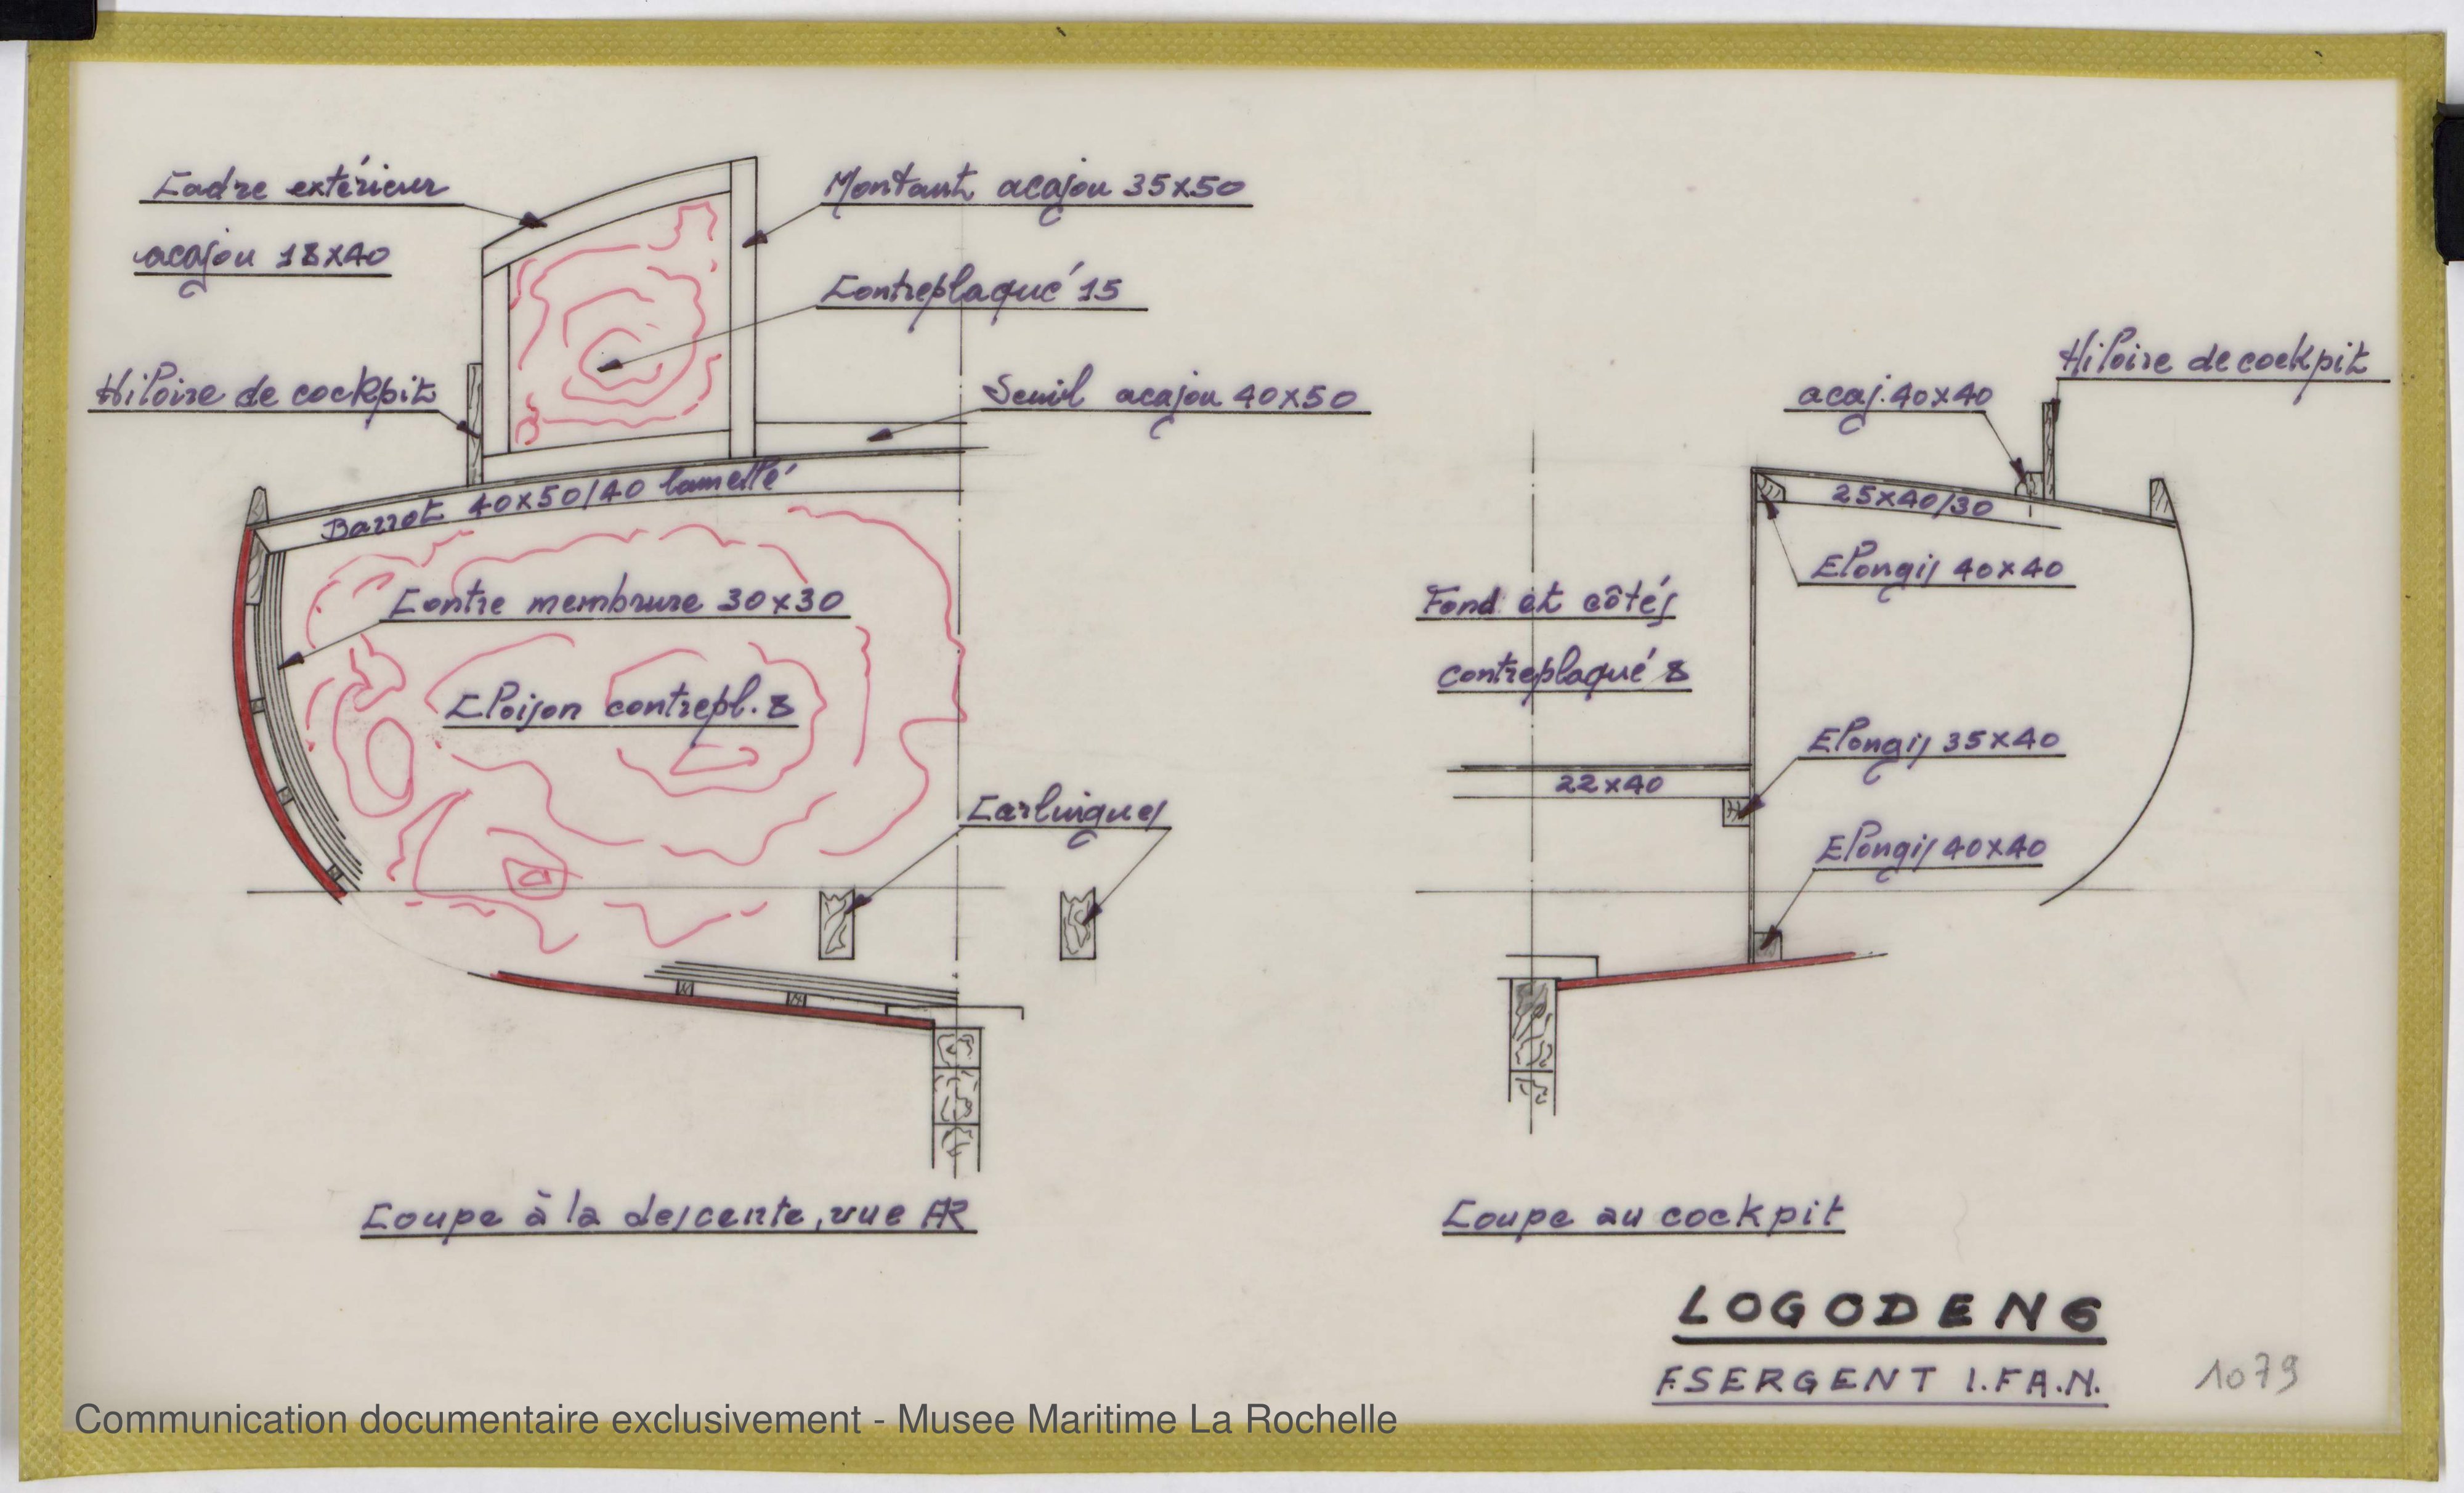 Cadre extérieur
acajou 18x40
Montant acajou 35x50
Contreplaqué 15
Hiloire de cockpit
Seuil acajou 40x50
Barrot 40x50/40 lamellé
Contre membrure 30x30
Cloison contrepl. 8
Carlingues
Coupe à la descente, vue AR
Hiloire de cockpit
acaj. 40x40
25x40/30
Elongis 40x40
Fond et côtés
contreplaqué 8
Elongis 35x40
22x40
Elongis 40x40
Coupe au cockpit
LOGODEN 6
F.SERGENT I.F.A.N.
1079
Communication documentaire exclusivement - Musee Maritime La Rochelle